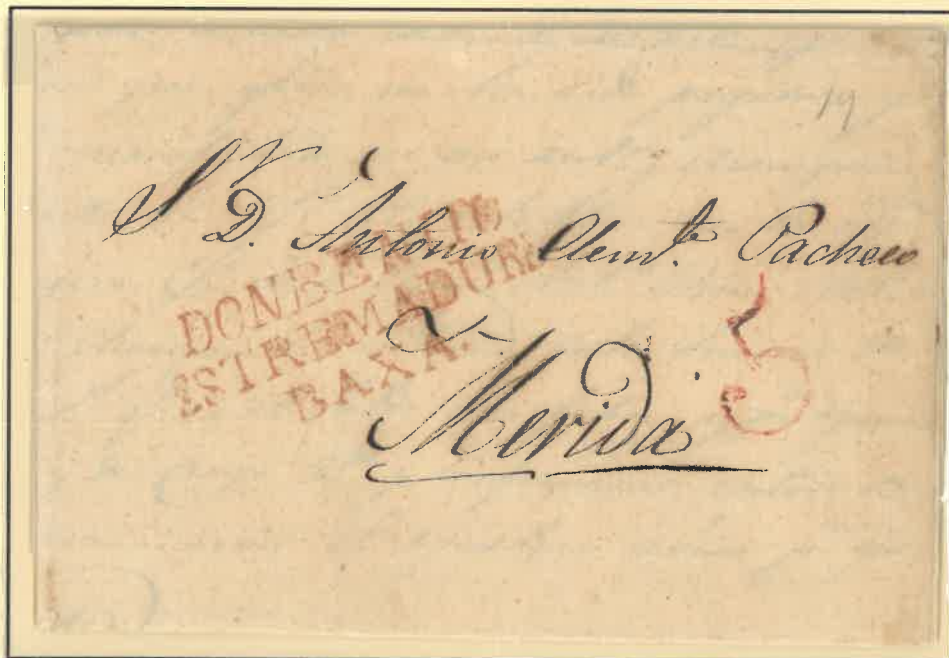 19
Sr
D. Antonio Clemte. Pacheco
DONBENITO
ESTREMADURA
BAXA.
5
Merida